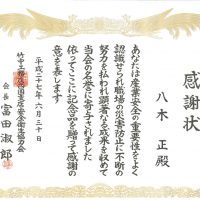 感謝状
八木 正殿
あなたは産業安全の重要性をよく
認識せられ職場の災害防止に不断の
努力を払われ顕著なる成果を収めて
当会の名誉に寄与されました
依ってここに記念品を贈って感謝の
意を表します
平成二十七年六月三十日
会長 富田淑郎